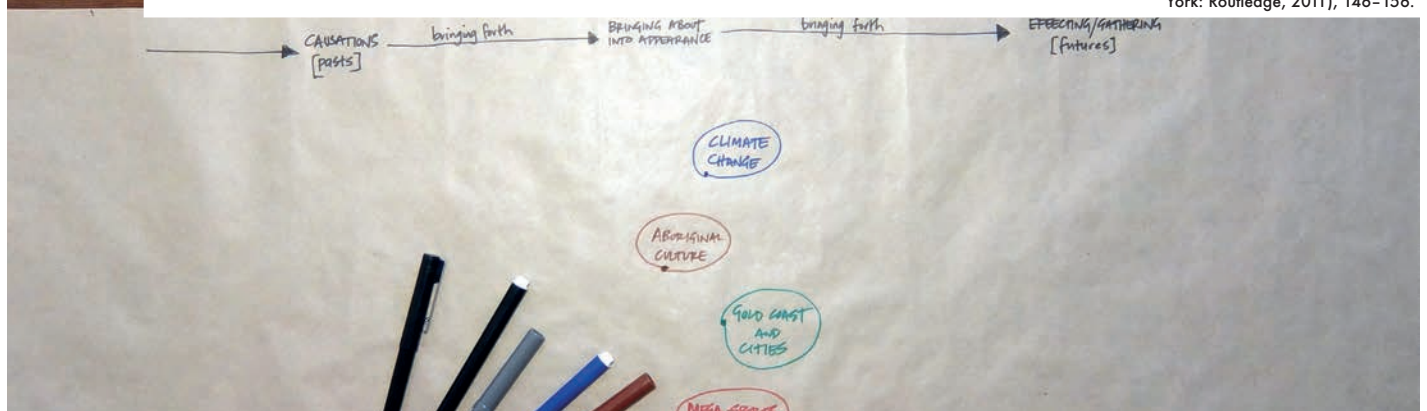 York: Routledge, 2011), 148–156.
CAUSATIONS
[pasts]
bringing forth
BRINGING ABOUT
INTO APPEARANCE
bringing forth
EFFECTING/GATHERING
[futures]
CLIMATE
CHANGE
ABORIGINAL
CULTURE
GOLD COAST
AND
CITIES
MEGA